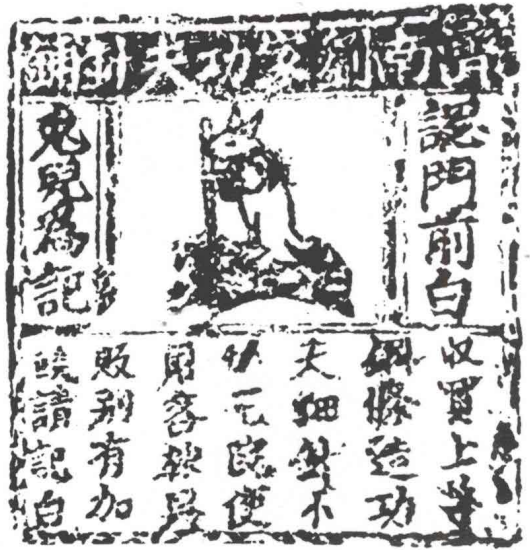 濟南劉家功夫針鋪
認門前白
兔兒爲記
收買上等
鋼條造功
夫細針不
院使
用客
販別有加
饒請記白